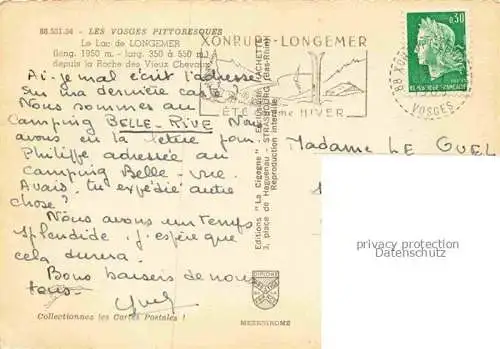 88.531.54 - LES VOSGES PITTORESQUES
Le Lac de LONGEMER
(long. 1950 m. - larg. 350 à 550 m.)
depuis la Roche des Vieux Chevaux
XONRUPT-LONGEMER
ÉTÉ HIVER
0,30
REPUBLIQUE FRANÇAISE
88 XO
VOSGES
Ai-je mal écrit l'adresse
sur ma dernière carte ?
Nous sommes au
Camping BELLE-RIVE Nous
avons eu la lettre pour
Philippe adressée au
Camping Belle-vue.
Avais-tu expédié autre
chose ?
Nous avons un temps
splendide. j'espère que
cela durera.
Bons baisers de nous
tous.
Editions "La Cigogne" - HACHETTE
3, place de Haguenau - STRASBOURG (Bas-Rhin)
Reproduction interdite
Madame LE GUEL
privacy protection
Datenschutz
DIPLOME
Collectionnez les Cartes Postales !
MEXICHROME